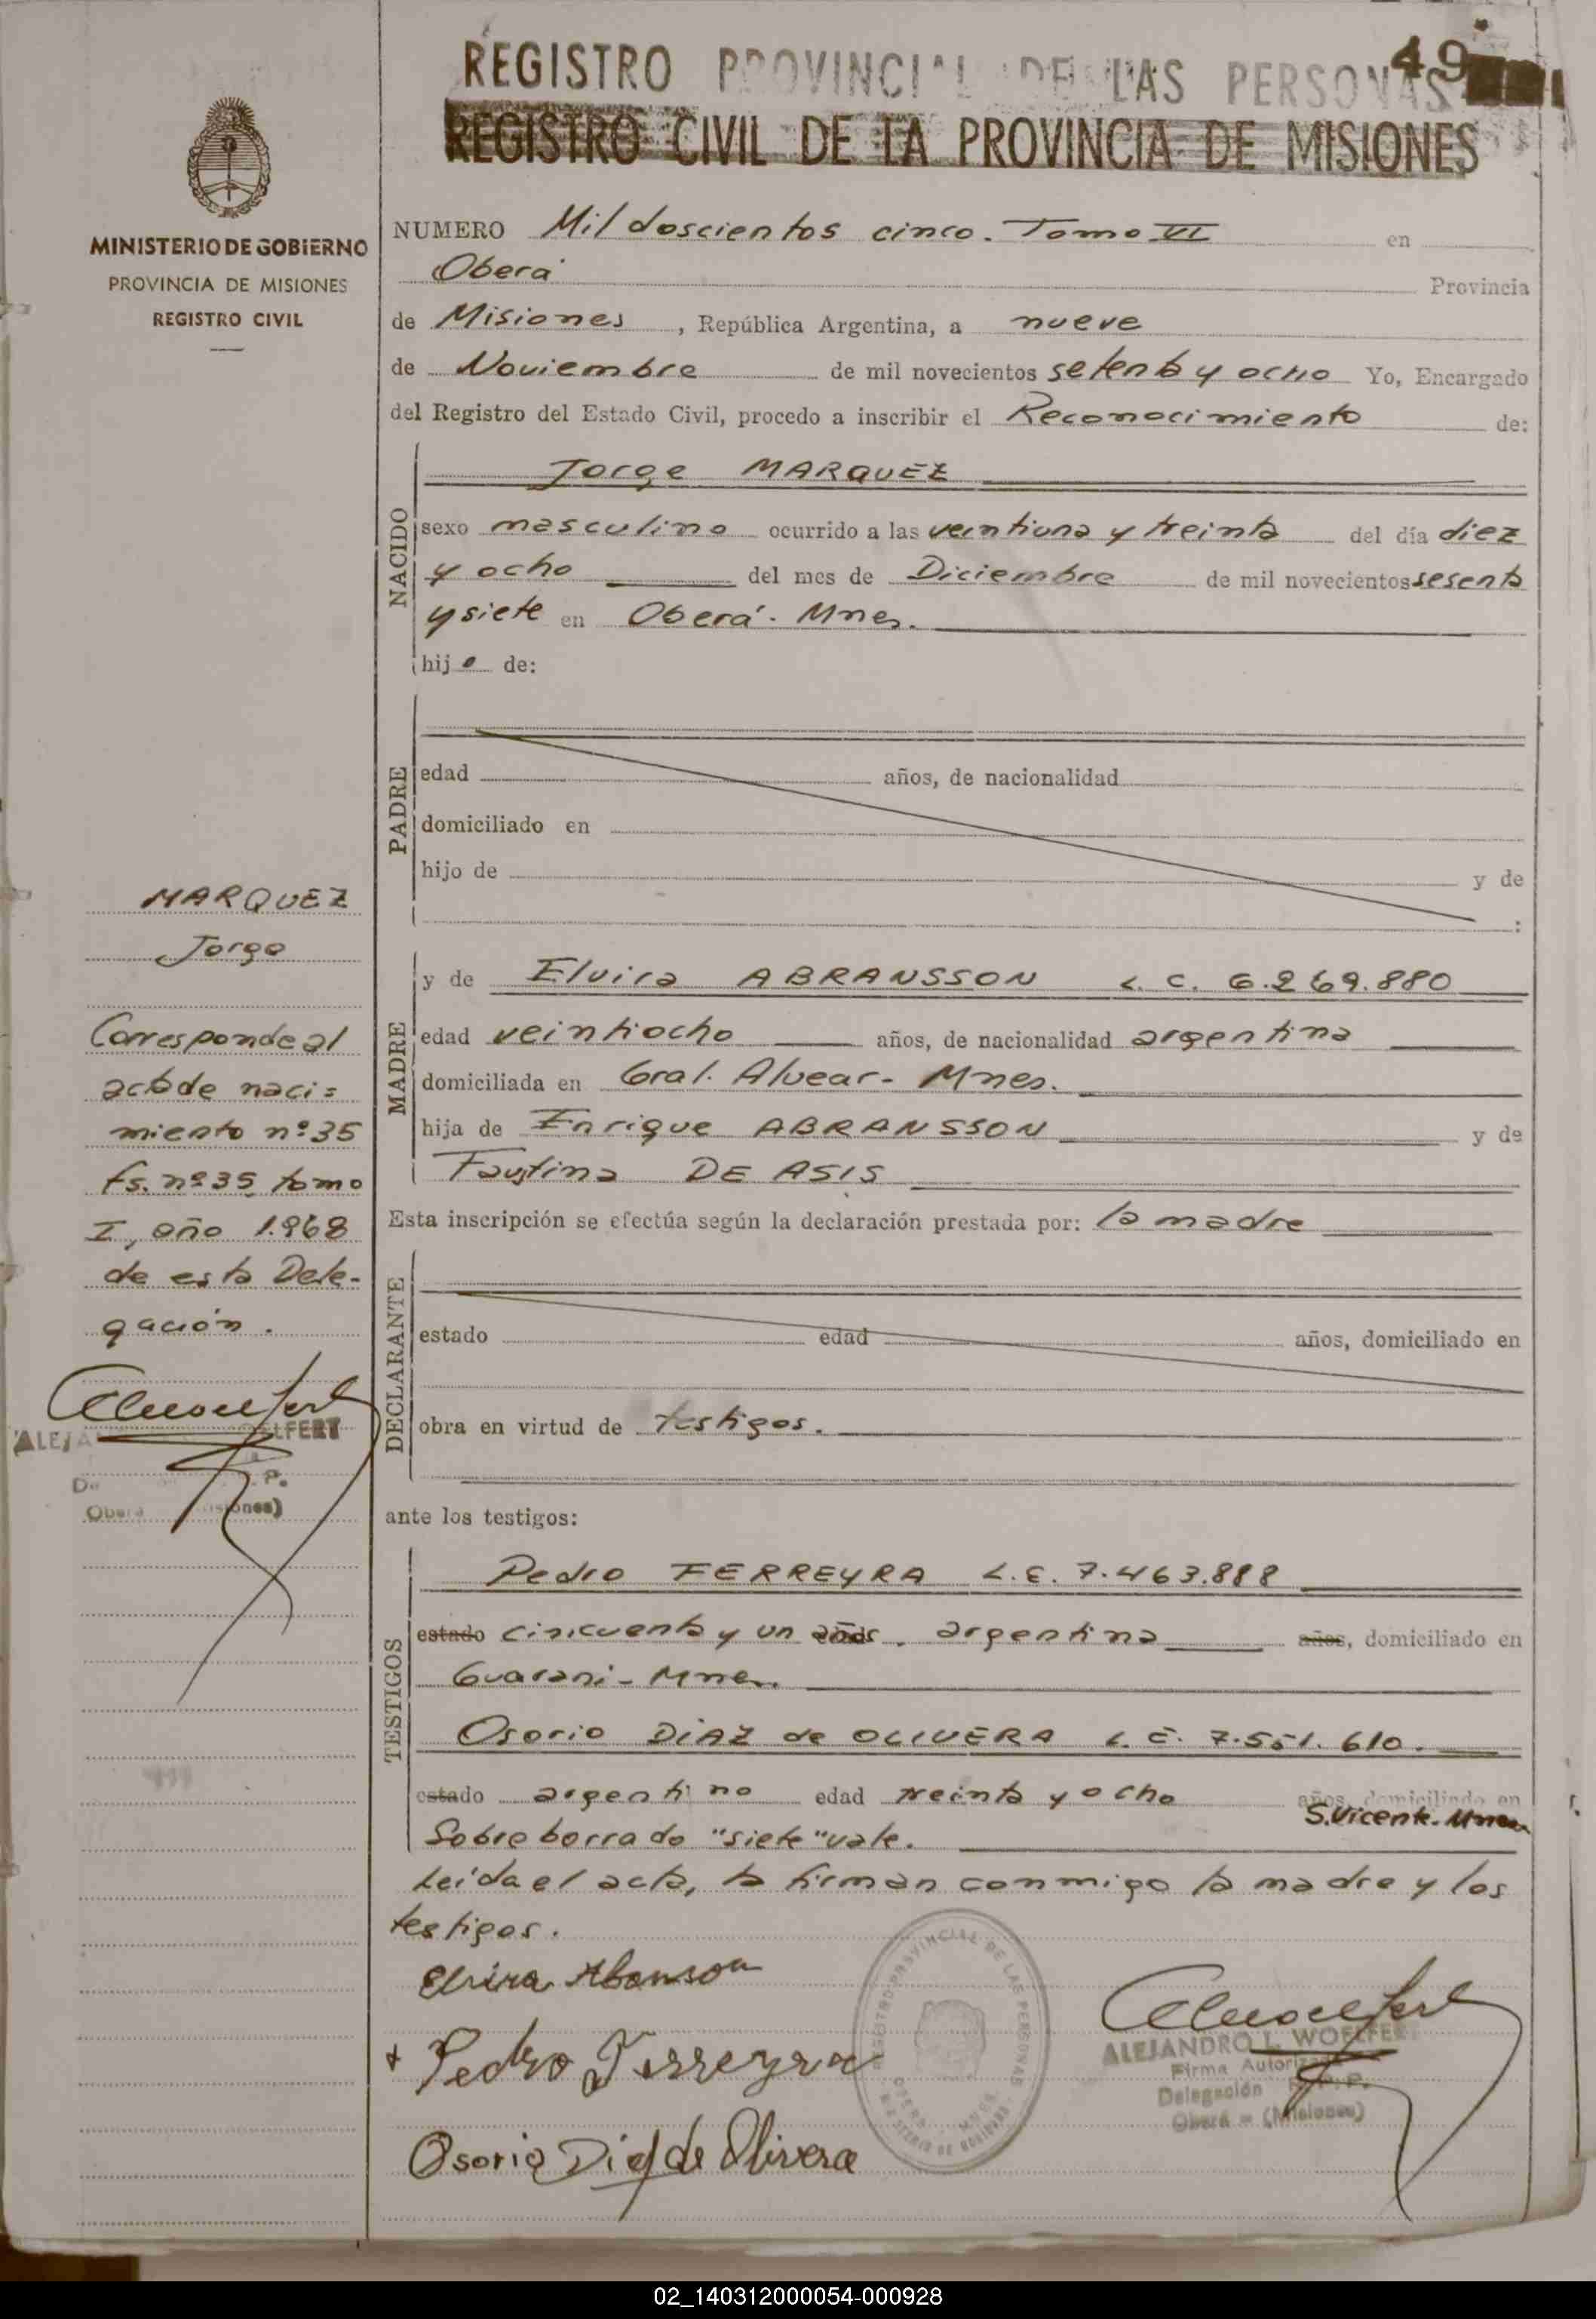 REGISTRO PROVINCIAL DE LAS PERSONAS
49
REGISTRO CIVIL DE LA PROVINCIA DE MISIONES
MINISTERIO DE GOBIERNO
PROVINCIA DE MISIONES
REGISTRO CIVIL
NUMERO Mil doscientos cinco. Tomo VI en
Oberá Provincia
de Misiones, República Argentina, a nueve
de Noviembre de mil novecientos setenta y ocho Yo, Encargado
del Registro del Estado Civil, procedo a inscribir el Reconocimiento de:
NACIDO
Jorge MARQUEZ
sexo masculino ocurrido a las veintiuna y treinta del día diez
y ocho del mes de Diciembre de mil novecientos sesenta
y siete en Oberá. Mnes.
hijo de:
PADRE
edad años, de nacionalidad
domiciliado en
hijo de y de
:
MADRE
y de Elvira ABRANSSON L. C. 6.269.880
edad veintiocho años, de nacionalidad argentina
domiciliada en Gral. Alvear- Mnes.
hija de Enrique ABRANSSON y de
Faustina DE ASIS
Esta inscripción se efectúa según la declaración prestada por: la madre
DECLARANTE
estado edad años, domiciliado en
obra en virtud de testigos.
ante los testigos:
TESTIGOS
Pedro FERREYRA L.E. 7.463.888
estado cincuenta y un años. argentina años, domiciliado en
Guarani- Mnes.
Osorio DIAZ de OLIVERA L.E. 7.551.610.
estado argentino edad treinta y ocho años, domiciliado en
S.Vicente. Mnes
Sobre borrado "siete" vale.
Leída el acta, la firman conmigo la madre y los
testigos.
Elvira Abranson
+ Pedro Ferreyra
Osorio Diaz de Olivera
REGISTRO PROVINCIAL DE LAS PERSONAS
ALEJANDRO L. WOELFERT
Firma Autorizada
Delegación R. P. P.
Oberá - (Misiones)
MARQUEZ
Jorge
Corresponde al
acta de naci=
miento nº 35
fs. nº 35, tomo
I, año 1.968
de esta Dele-
gación.
ALEJA ELFERT
De P.
Oberá isiones)
02_140312000054-000928